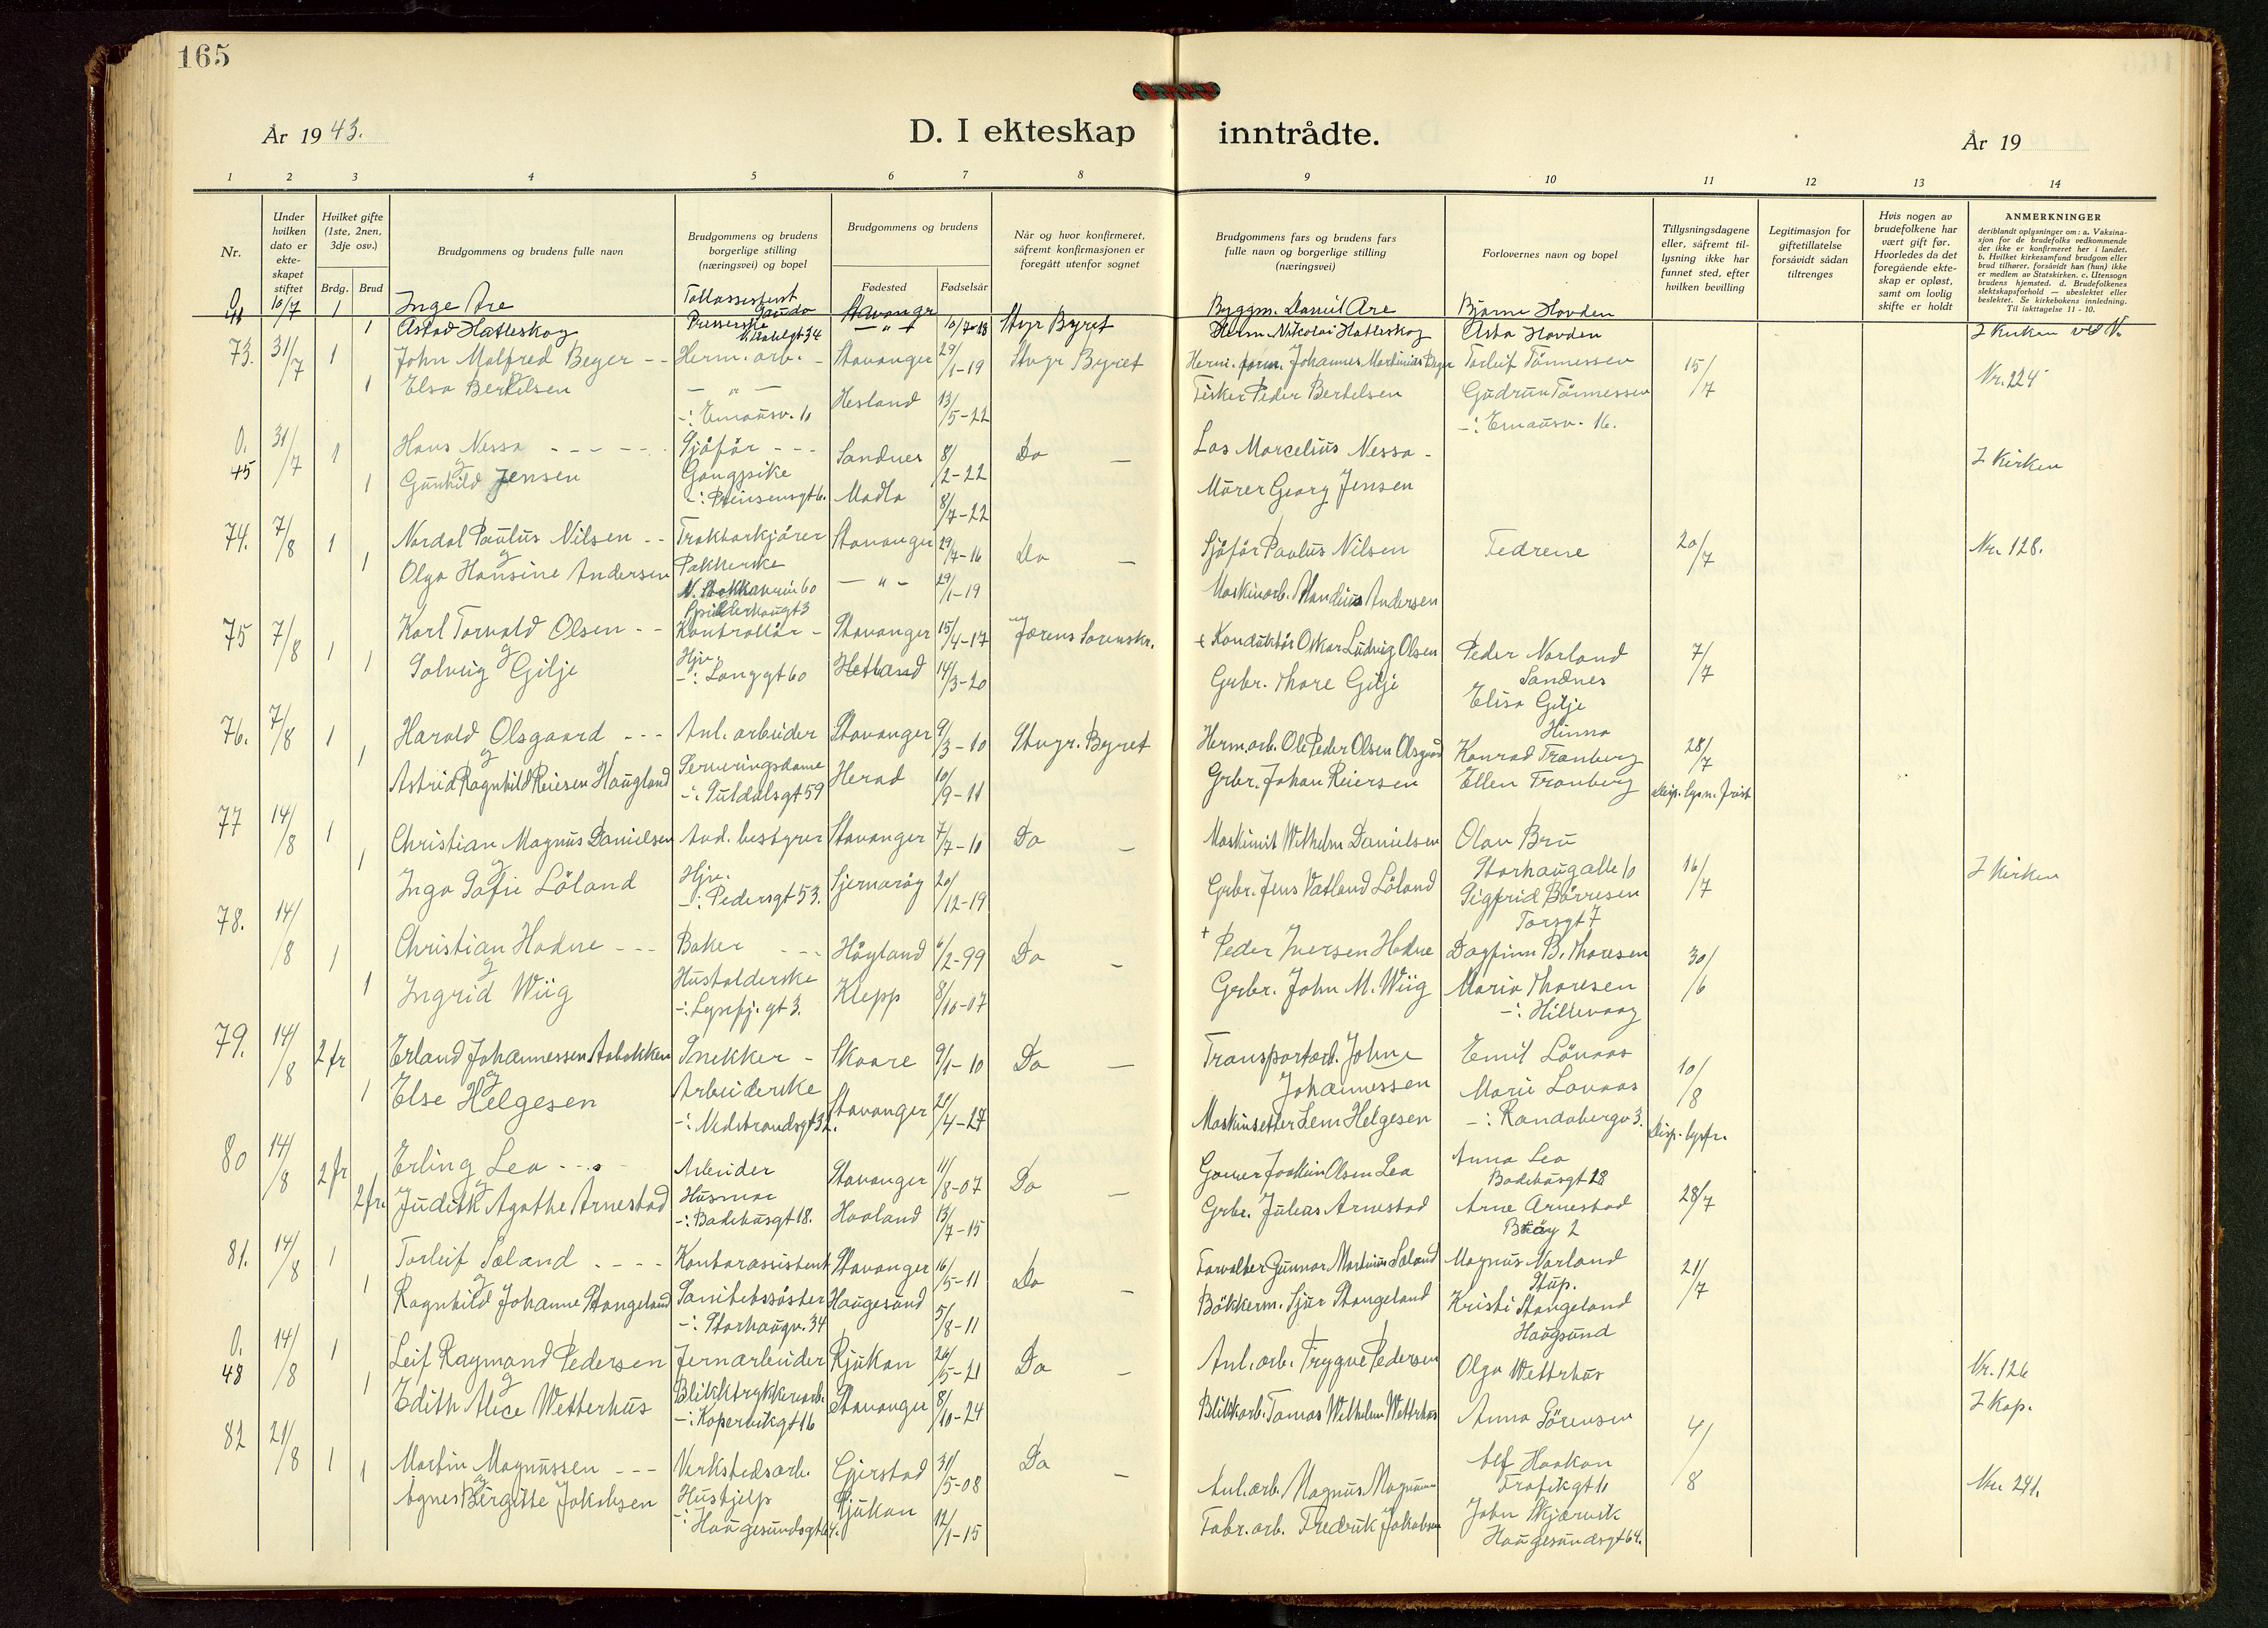 165
År 1943.
D. I ekteskap inntrådte.
År 19
1 2 3 4 5 6 7 8 9 10 11 12 13 14
Nr.
Under hvilken dato er ekteskapet stiftet
Hvilket gifte (1ste, 2nen, 3dje osv.)
Brdg. Brud
Brudgommens og brudens fulle navn
Brudgommens og brudens borgerlige stilling (næringsvei) og bopel
Brudgommens og brudens
Fødested Fødselsår
Når og hvor konfirmeret, såfremt konfirmasjonen er foregått utenfor sognet
Brudgommens fars og brudens fars fulle navn og borgerlige stilling (næringsvei)
Forlovernes navn og bopel
Tillysningsdagene eller, såfremt tillysning ikke har funnet sted, efter hvilken bevilling
Legitimasjon for giftetillatelse forsåvidt sådan tiltrenges
Hvis nogen av brudefolkene har vært gift før. Hvorledes da det foregående ekteskap er opløst, samt om lovlig skifte er holdt
ANMERKNINGER
deriblandt oplysninger om: a. Vaksinasjon for de brudefolks vedkommende der ikke er konfirmeret her i landet. b. Hvilket kirkesamfund brudgom eller brud tilhører, forsåvidt han (hun) ikke er medlem av Statskirken. c. Utensogn brudens hjemsted. d. Brudefolkenes slektskapsforhold — ubeslektet eller beslektet. Se kirkebokens innledning. Til iakttagelse 11 - 10.
10/7 1 Inge Are Tollassistent Stavanger Byggm. Daniel Are Bjarne Hovden
1 Astad Hatleskog Presserske — " — 10/7-18 Stvgr Byret Herm. Nikolai Hatleskog Asta Hovden I Kirken
73. 31/7 1 John Malfred Beyer -- Herm. arb. - Stavanger 29/1-19 Stvgr Byret Herm. form. Johannes Martinius Beyer Torleif Tönnessen 15/7 Nr. 224
1 Elsa Bertelsen — " — Hesland 13/5-22 Fisker Peder Bertelsen Gudrun Tönnessen
-: Emausv. 16 -: Emausv. 16.
O. 45 31/7 1 Hans Nessa - - - - - Sjåför - - - Sandnes 8/2-22 Do — Los Marcelius Nessa - I Kirken
g
1 Gunhild Jensen Gangpike Madla 8/7-22 Mürer Georg Jensen
-: Prinsensgt 6.
74. 7/8 1 Nordal Paulus Nilsen -- Traktorkjörer Stavanger 29/7-16 Do — Sjåför Paulus Nilsen Fedrene 20/7 Nr. 128.
g
1 Olga Hansine Andersen Pakkerske — " — 29/1-19 Maskinarb. Mandius Andersen
N. Stokkavein 60
75 7/8 1 Karl Torvald Olsen -- Kontrollör - Stavanger 15/4-17 Jærens Sorenskr. + Konduktör Oskar Ludvig Olsen Peder Norland 7/7
g Sandnes
1 Solveig Gilje Hjv. Hetland 14/3-20 Grbr. Thore Gilje Elisa Gilje
-: Langgt 60 Hinna
76. 7/8 1 Harald Olsgaard --- Anl. arbeider Stavanger 9/3-10 Stvgr. Byret Herm. arb. Ole Peder Olsen Olsgård Konrad Tranberg 28/7
g
1 Astrid Ragnhild Reiesen Haugland Serveringsdame Herad 10/9-11 Grbr. Johan Reiersen Ellen Tranberg Disp. lysn. frist
-: Suldalsgt 59
77 14/8 1 Christian Magnus Danielsen Avd. bestyrer Stavanger 7/7-10 Do — Maskinist Wilhelm Danielsen Olav Bru 16/7 I Kirken
g Storhaugalle 10
1 Inga Sofie Löland Hjv. Sjernaröy 20/12-19 Grbr. Jens Vatland Löland Sigfrid Börresen
-: Pedersgt 53. Torsgt 7
78. 14/8 1 Christian Hodne --- Baker -- Höyland 6/2-99 Do — + Peder Iversen Hodne Dagfinn B. Thoresen 30/6
g
1 Ingrid Wiig Husholderske Klepp 8/10-07 Grbr. John M. Wiig Maria Thoresen
-: Lysefj. gt 3. -: Hillevaag
79. 14/8 2 fr Erland Johannessen Aabakken Snekker - Skaare 9/1-10 Do — Transportarb. Johne Johannessen Emil Lövaas 10/8
og
1 Else Helgesen Arbeiderske Stavanger 21/4-24 Maskinsetter Lem Helgesen Marie Lovaas
-: Nedstrandsgt 32. -: Randabergv 3. Disp. lysfr.
80 14/8 2 fr Erling Lea --- Arbeider Stavanger 11/8-07 Do — Garver Joakim Olsen Lea Anna Lea 28/7
g Badehusgt 28
2 fr. Judith Agathe Arnestad Husmor Haaland 13/7-15 Grbr. Julius Arnestad Arne Arnestad
-: Badehusgt 18. 2
81. 14/8 1 Torleif Sæland - - - - Kontorassistent Stavanger 16/5-11 Do — Forvalter Gunnar Martinius Sæland Magnus Norland 21/7
g Stup.
1 Ragnhild Johanne Stangeland Sanitetssöster Haugesund 5/8-11 Bökkerm. Sjur Stangeland Kristi Stangeland
-: Storhaugv. 34 Haugsund
O. 48 14/8 1 Leif Raymond Pedersen Jernarbeider Rjukan 26/5-21 Do — Anl. arb. Trygve Pedersen Olga Wetterhus Nr. 126
g
1 Edith Alice Wetterhus Blikktrykkeriarb. Stavanger 8/10-24 Blikkarb. Tomas Wilhelm Wetterhus Anna Sörensen I Kap.
-: Kopervikgt 16
82 21/8 1 Martin Magnussen --- Verkstedsarb. Gjerstad 31/5-08 Do — Anl. arb. Magnus Magnussen Alf Haakon 4/8 Nr. 241.
og Trafikgt 10
1 Agnes Bergitte Jakobsen Hushjelp Rjukan 12/1-15 Fabr. arb. Fredrik Jakobsen John Skjærvik
-: Haugesundsgt 64. Haugesundsgt 64.